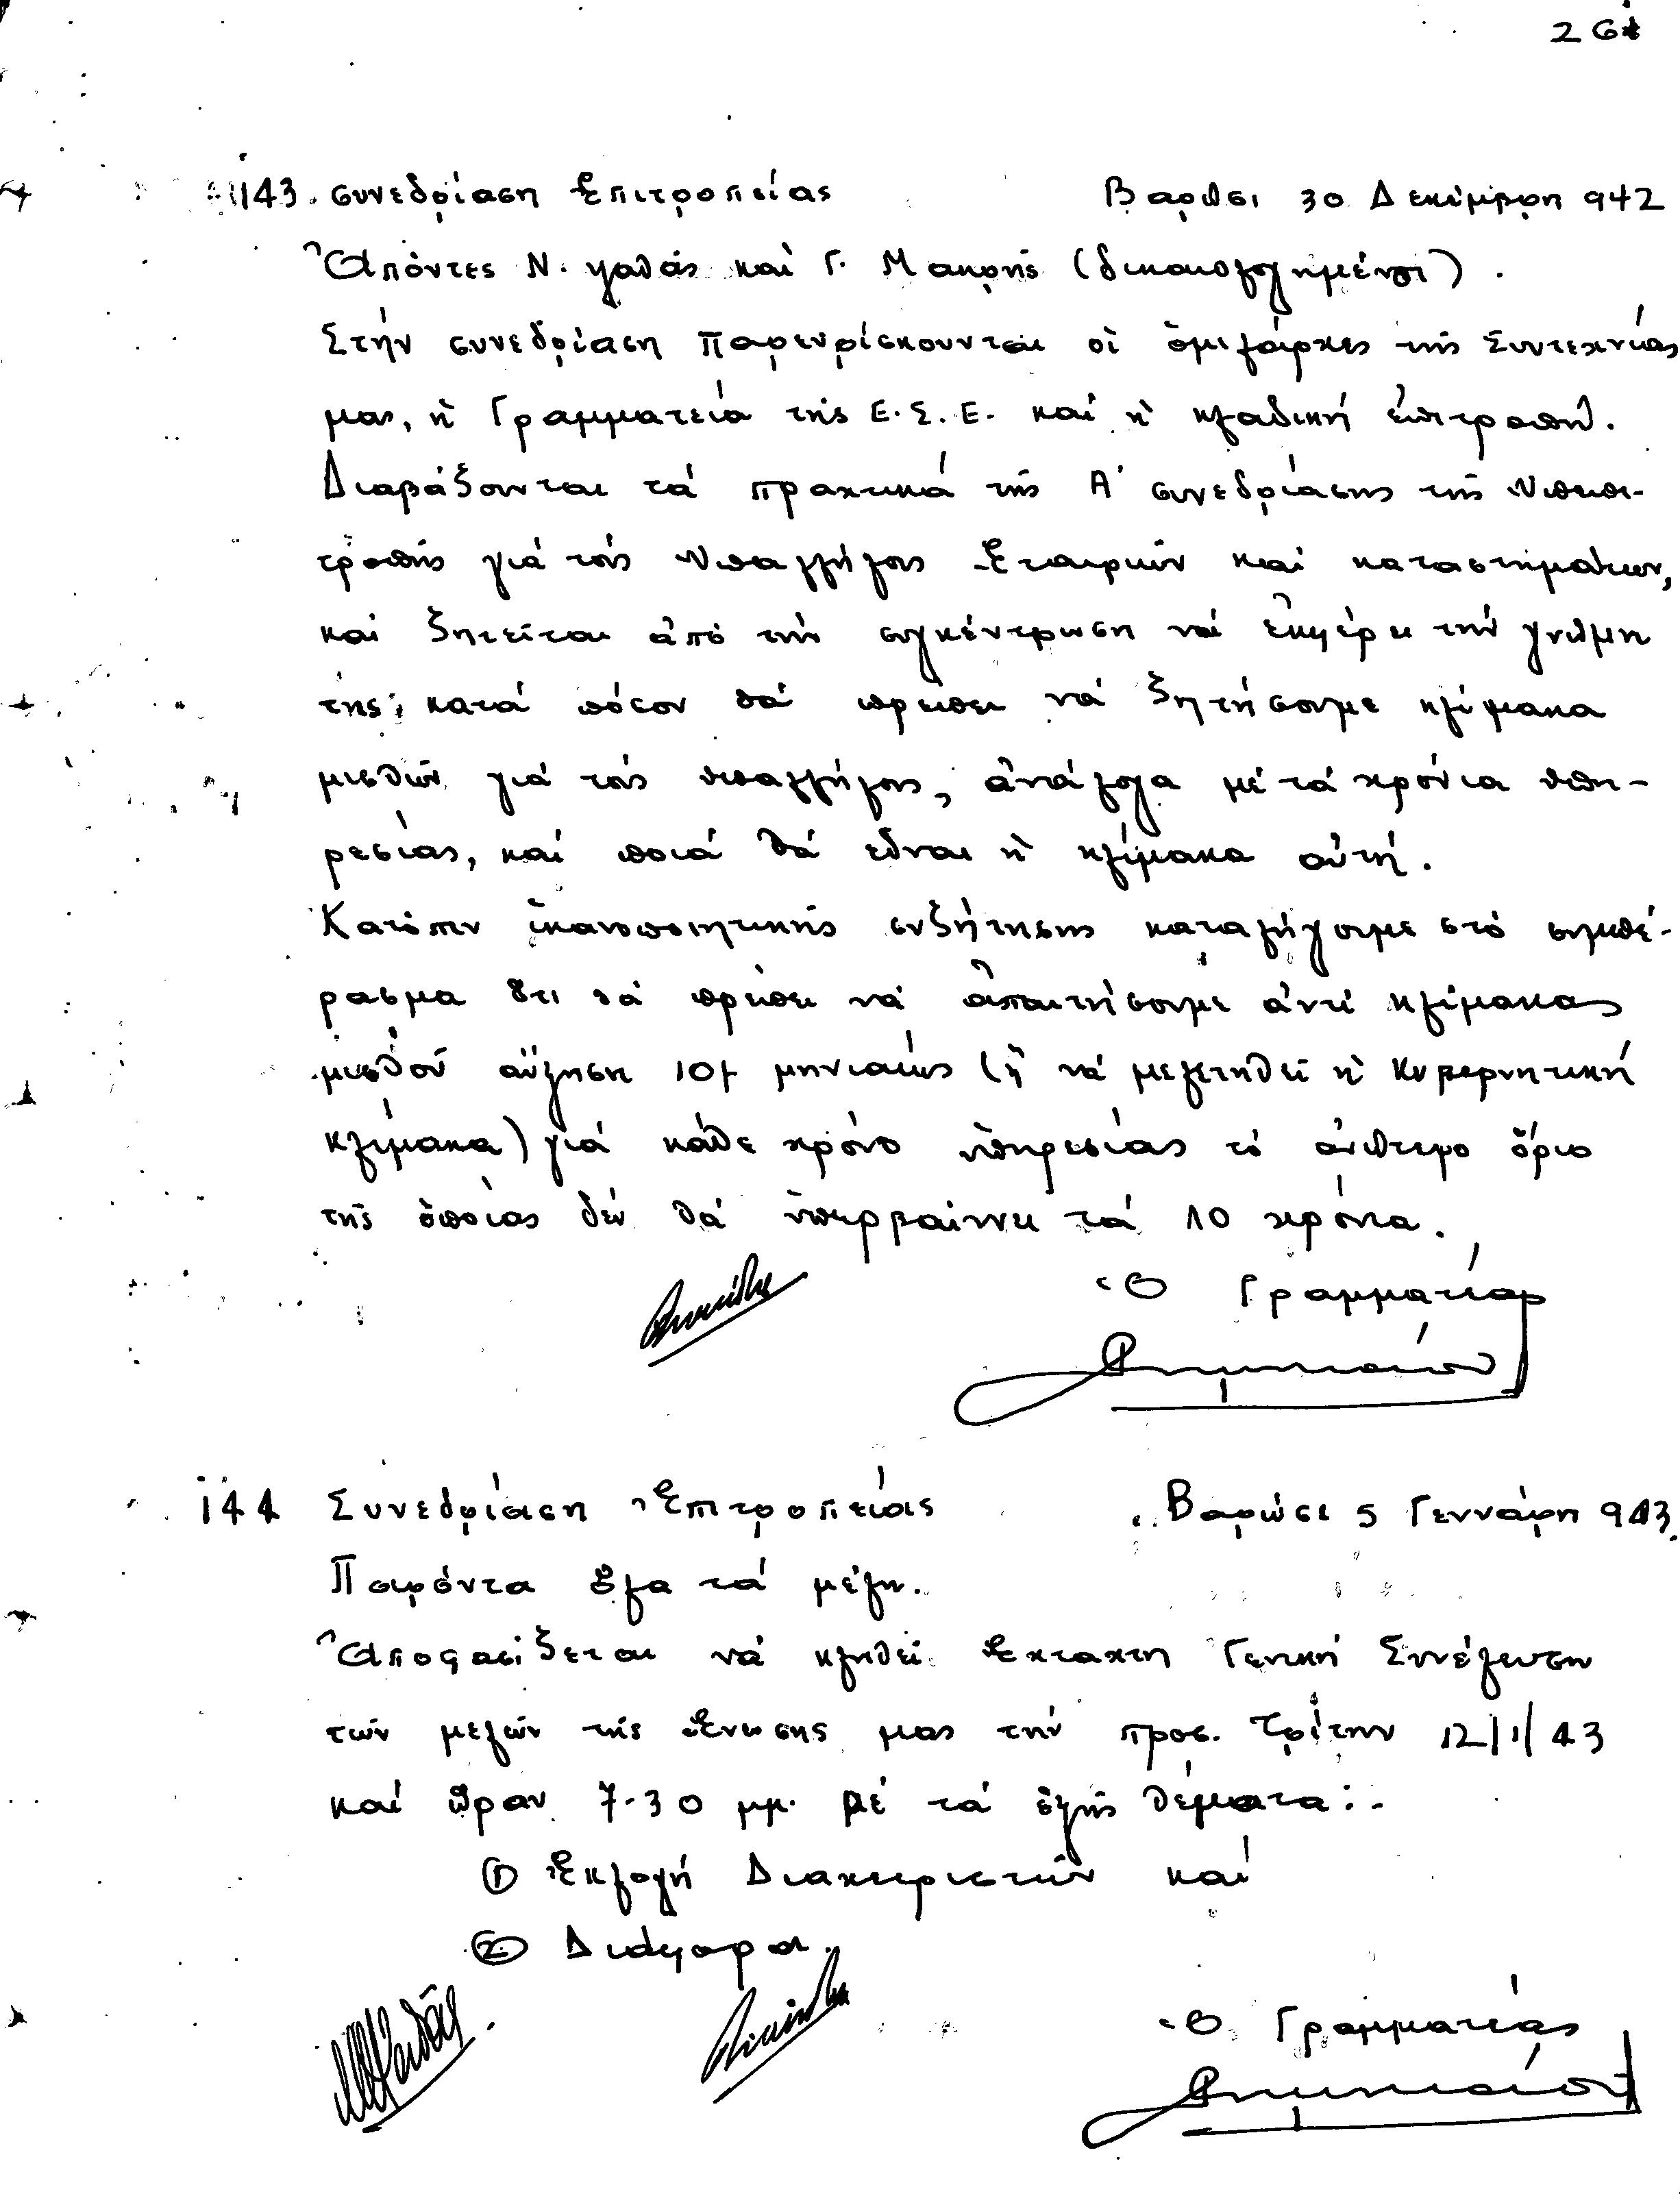 143. συνεδρίαση Ἐπιτροπείας Βαρώσι 30 Δεκέμβρη 942
Ἀπόντες Ν. γαθάς καί Γ. Μακρής (δικαιολογημένοι).
Στήν συνεδρίαση παρευρίσκουνται οἱ ὁμιλάρχες τῆς Συντεχνίας
μας, ἡ Γραμματεία τῆς Ε.Σ.Ε. καί ἡ κλαδική ἐπιτροπή.
Διαβάζουνται τά πρακτικά τῆς Α΄ συνεδρίασης τῆς Ὑποεπι-
τροπῆς γιά τούς Ὑπαλλήλους Ἑταιριῶν καί καταστημάτων,
καί ζητεῖται ἀπό τήν συγκέντρωση νά ἐκφέρει τήν γνώμη
της, κατά πόσον θά πρέπει νά ζητήσουμε κλίμακα
μισθῶν γιά τούς ὑπαλλήλους, ἀνάλογα μέ τά χρόνια ὑπη-
ρεσίας, καί ποιά θά εἶναι ἡ κλίμακα αὐτή.
Κατόπιν ἱκανοποιητικῆς συζήτησης καταλήγουμε στό συμπέ-
ρασμα ὅτι θά πρέπει νά ἀπαιτήσουμε ἀντί κλίμακας
μισθοῦ αὔξηση 10/- μηνιαίως (ἤ νά μελετηθεῖ ἡ Κυβερνητική
κλίμακα) γιά κάθε χρόνο ὑπηρεσίας τό ἀνώτερο ὅριο
τῆς ὁποίας δέν θά ὑπερβαίννει τά 10 χρόνια.
Ὁ Γραμματέας
144 Συνεδρίαση Ἐπιτροπείας Βαρώσι 5 Γεννάρη 943.
Παρόντα ὅλα τά μέλη.
Ἀποφασίζεται νά κληθεῖ Ἔκτακτη Γενική Συνέλευση
τῶν μελῶν τῆς Ἕνωσης μας τήν προσ. Τρίτην 12/1/43
καί ὥραν 7-30 μμ. μέ τά ἑξῆς θέματα:-
① Ἐκλογή Διαχειριστῶν καί
② Διάφορα.
Ὁ Γραμματέας